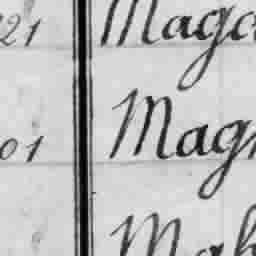 21 Maga
01 Mag
Mah